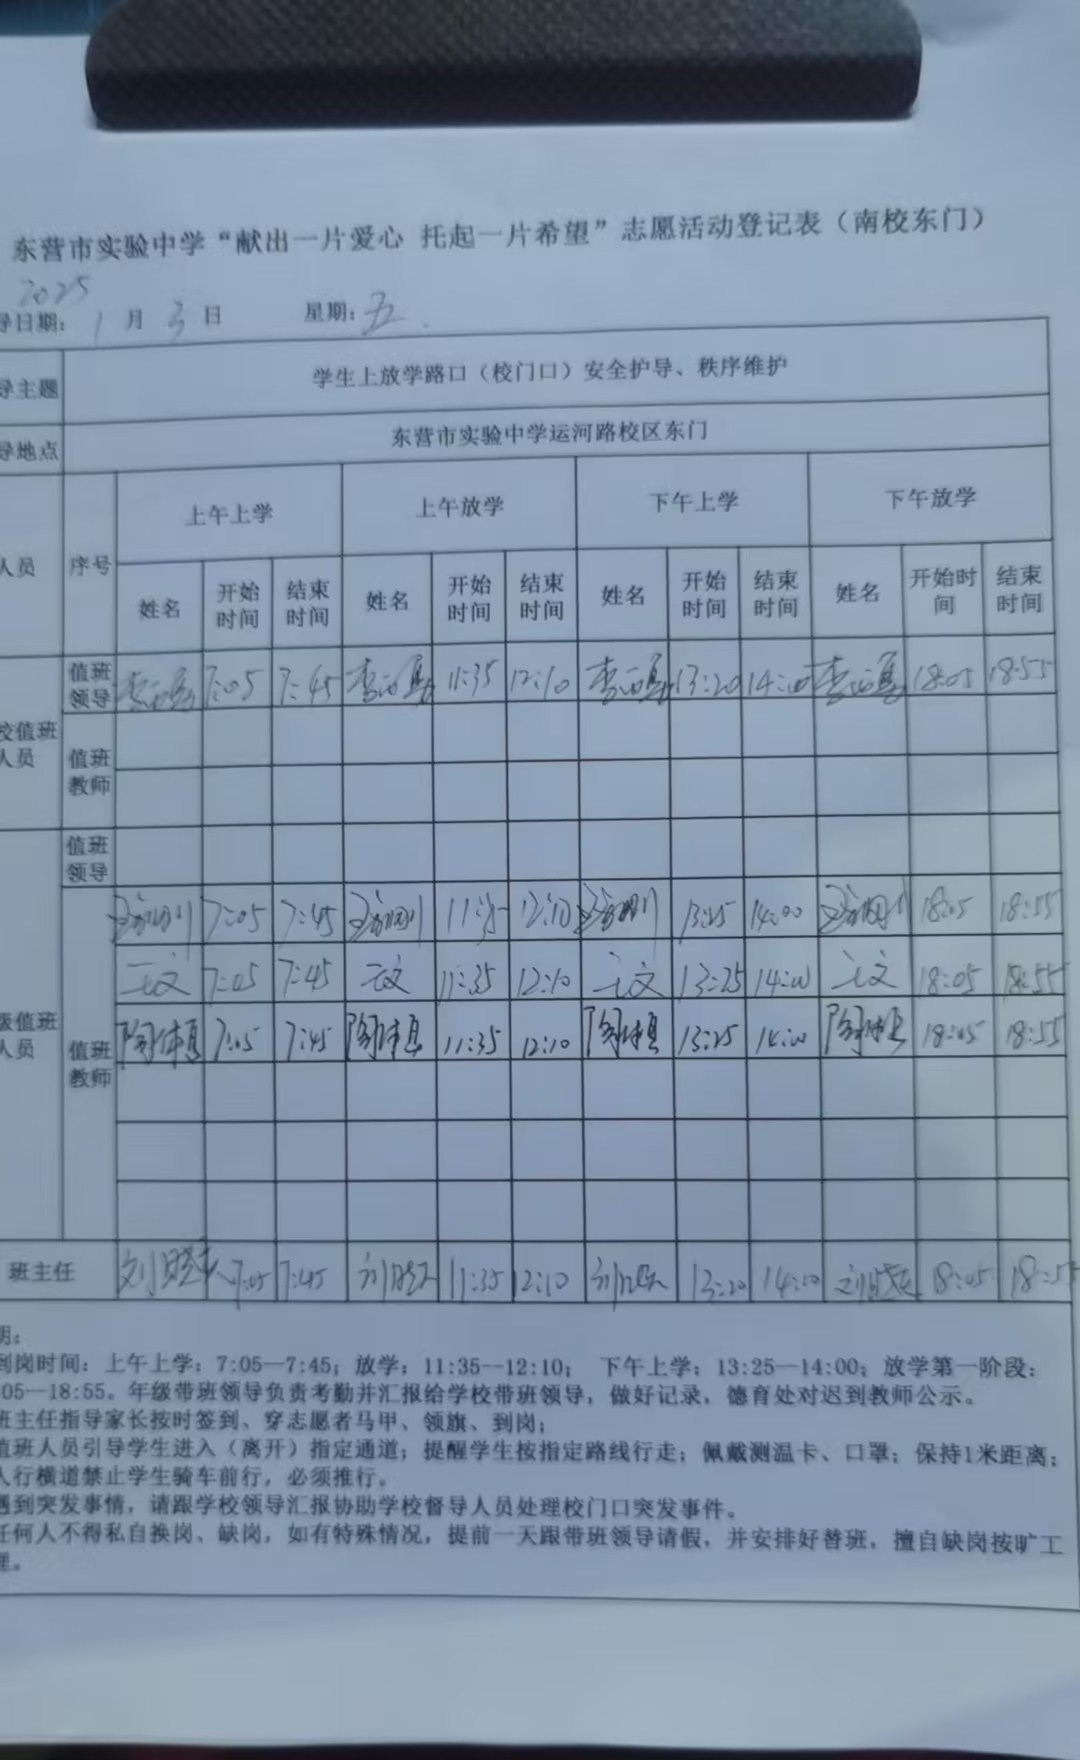 东营市实验中学“献出一片爱心 托起一片希望”志愿活动登记表（南校东门）
2025
导日期： 1 月 3 日 星期：五
导主题 学生上放学路口（校门口）安全护导、秩序维护
导地点 东营市实验中学运河路校区东门
人员 序号 上午上学 上午放学 下午上学 下午放学
姓名 开始时间 结束时间 姓名 开始时间 结束时间 姓名 开始时间 结束时间 姓名 开始时间 结束时间
校值班人员 值班领导 7:05 7:45 11:35 12:10 13:20 14:00 18:05 18:55
值班教师
值班领导
7:05 7:45 11:35 12:10 13:25 14:00 18:05 18:55
王文 7:05 7:45 王文 11:35 12:10 王文 13:25 14:00 王文 18:05 18:55
级值班人员 值班教师 7:05 7:45 11:35 12:10 13:25 14:00 18:05 18:55
班主任 7:05 7:45 11:35 12:10 13:20 14:10 18:05 18:55
明：
到岗时间：上午上学：7:05—7:45；放学：11:35—12:10； 下午上学：13:25—14:00；放学第一阶段：
05—18:55。年级带班领导负责考勤并汇报给学校带班领导，做好记录，德育处对迟到教师公示。
班主任指导家长按时签到、穿志愿者马甲、领旗、到岗；
值班人员引导学生进入（离开）指定通道；提醒学生按指定路线行走；佩戴测温卡、口罩；保持1米距离；
人行横道禁止学生骑车前行，必须推行。
遇到突发事情，请跟学校领导汇报协助学校督导人员处理校门口突发事件。
任何人不得私自换岗、缺岗，如有特殊情况，提前一天跟带班领导请假，并安排好替班，擅自缺岗按旷工
理。